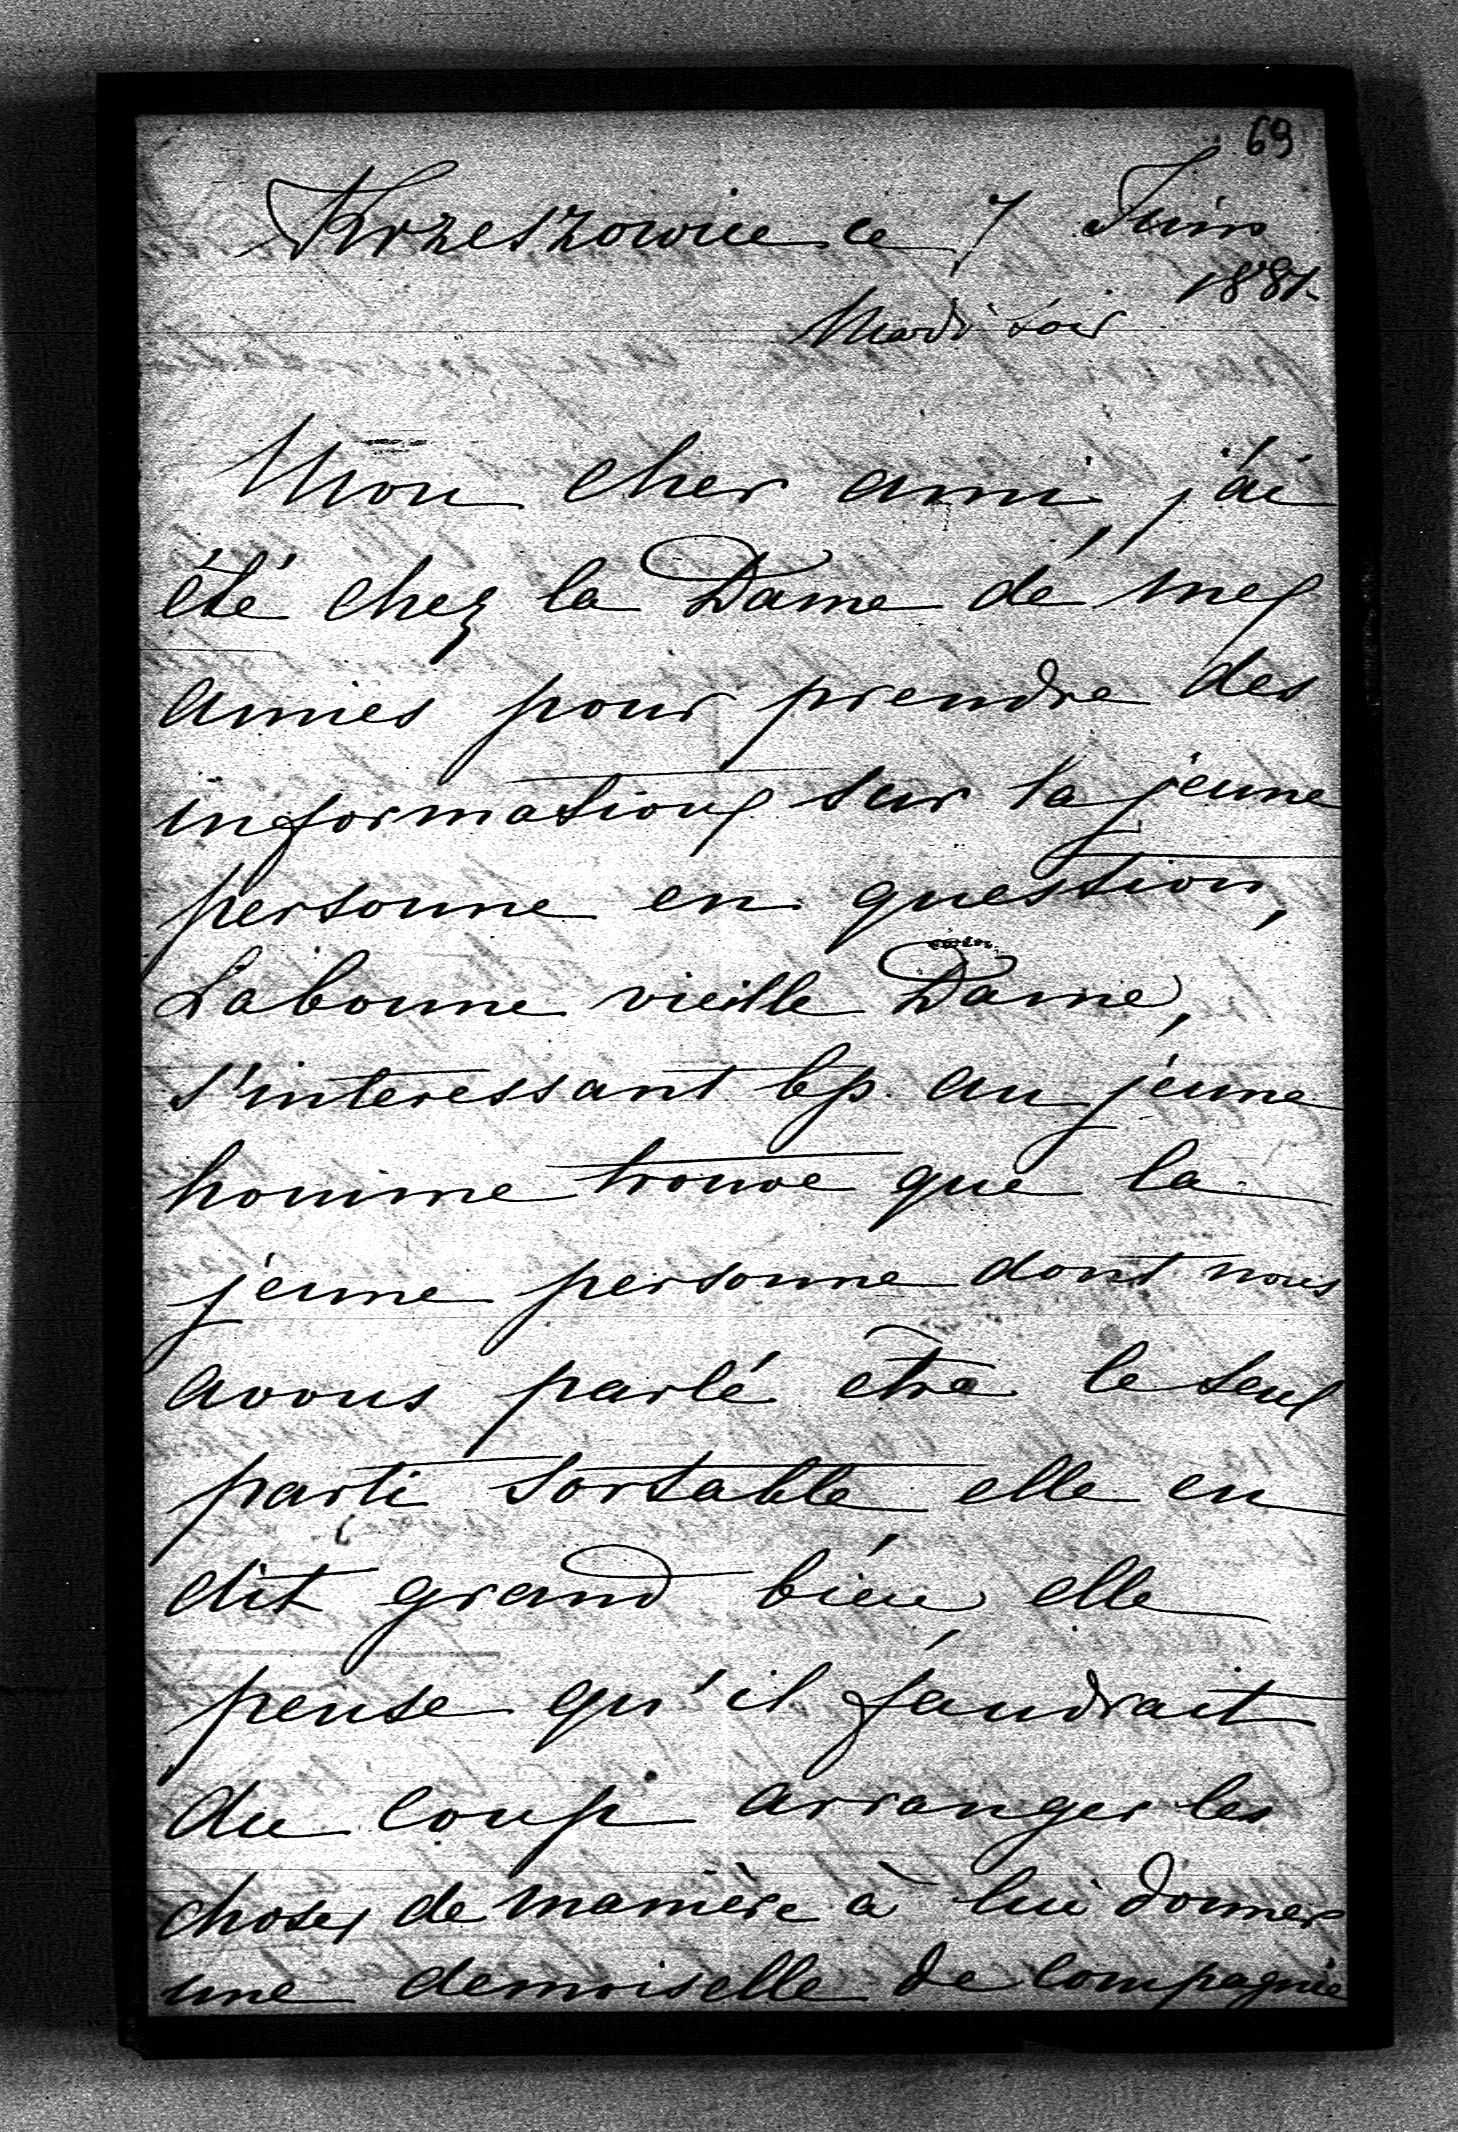 69
Krzeszowice ce 7 Juin
1881.
Mardi soir
Mon cher ami, j'ai
été chez la Dame de mes
amies pour prendre des
informations sur la jeune
personne en question,
La bonne vieille Dame,
s'interessant bp. au jeune
homme trouve que la
jeune personne dont nous
avons parlé etre le seul
parti sortable elle en
dit grand bien, elle
pense qu'il faudrait
du coup arranger les
choses de manière à lui donner
une demoiselle de compagnie